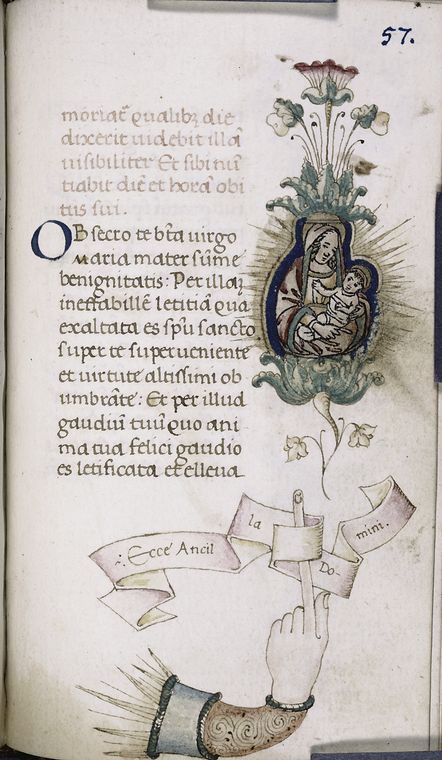 57.
moriat̃ qualibꝫ die
dixerit uidebit illā
uisibiliter Et sibi nū
tiabit diē et horā obi
tus sui.
OBsecro te bt̃a uirgo
Maria mater sūme
benignitatis: Per illaꝫ
ineffabillē letitiā qua
exaltata es sp̄u sancto
super te superueniente
et uirtute altissimi ob
umbrāte: Et per illud
gaudiū tuū quo ani
ma tua felici gaudio
es letificata et elleua
Ecce Ancil
la
Do
mini.